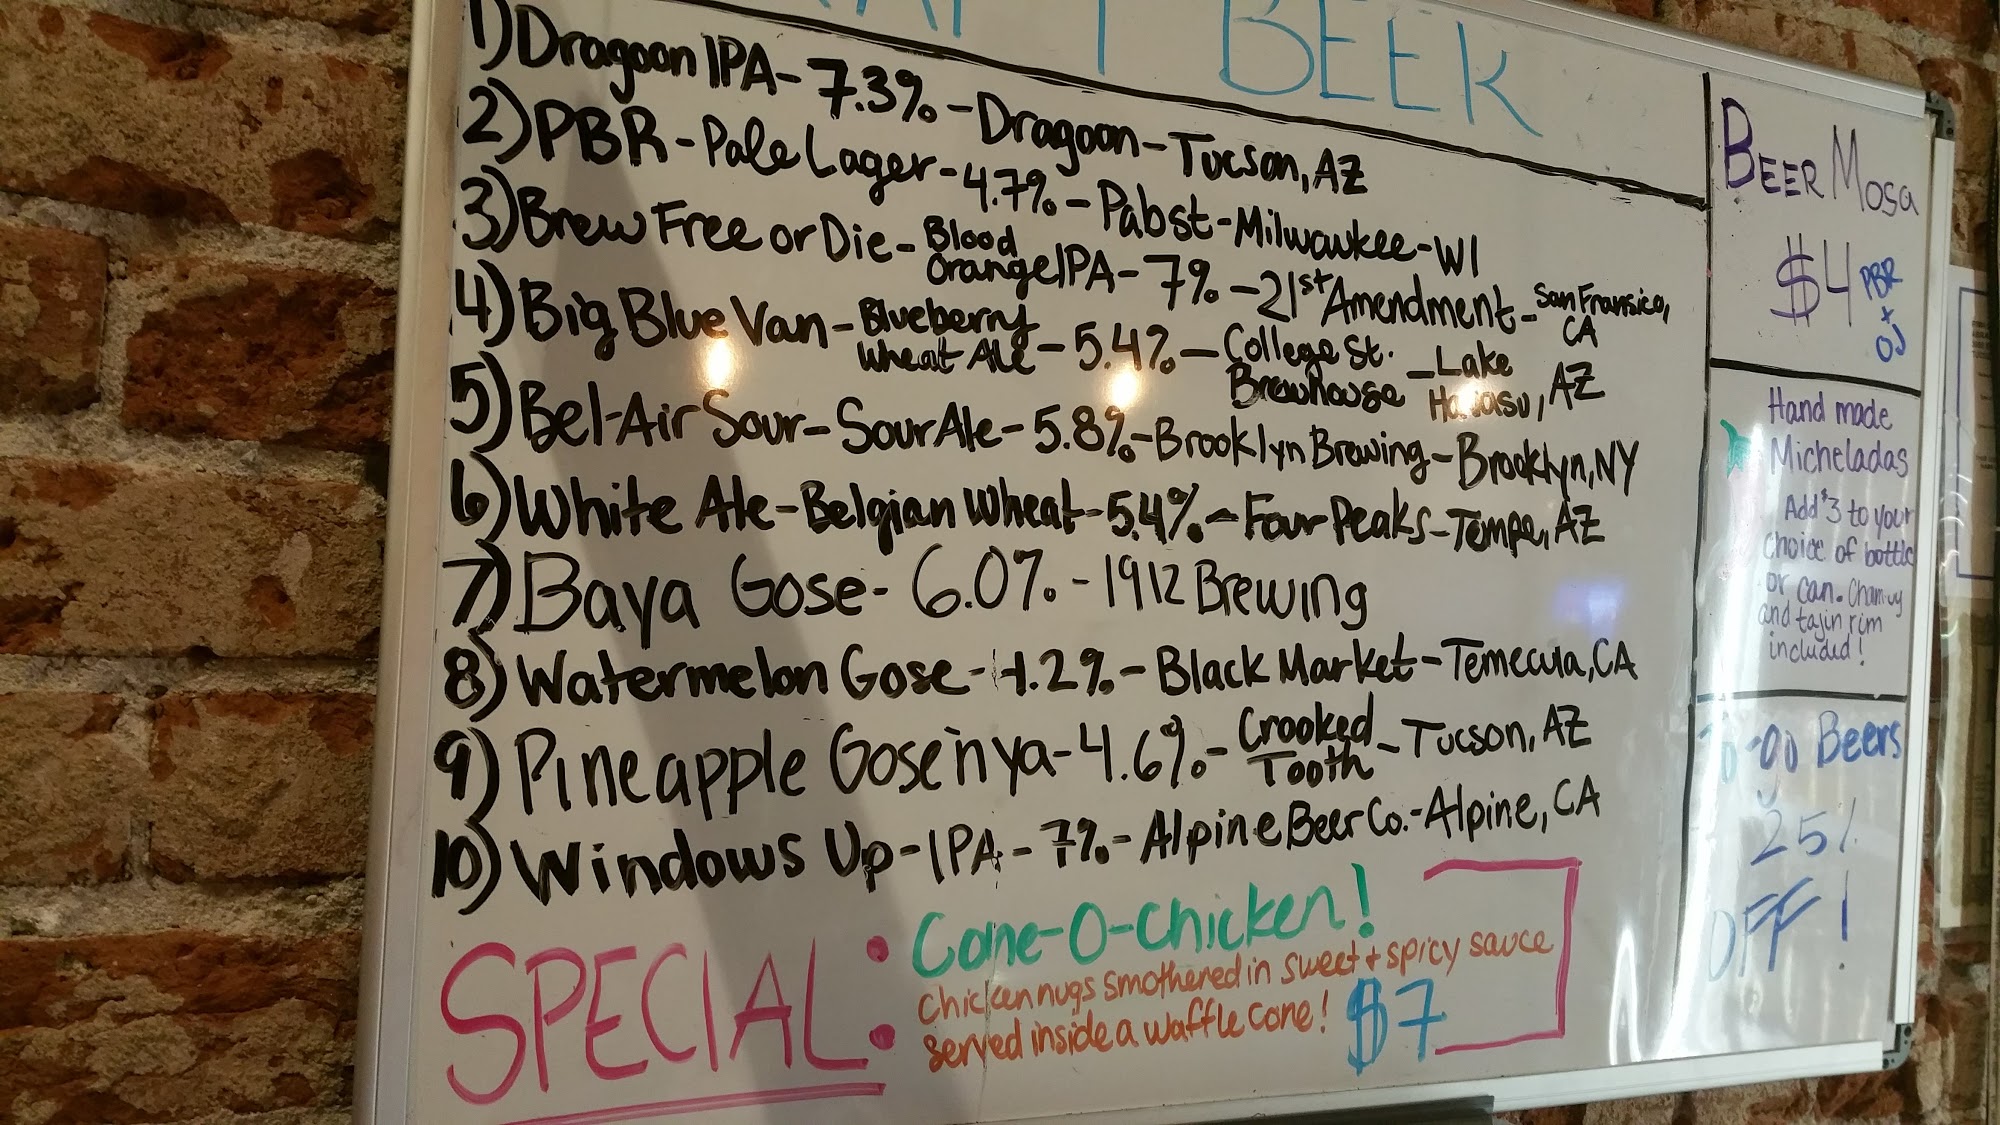 BEER
1) Dragoon IPA - 7.3% - Dragoon - Tucson, AZ
2) PBR - Pale Lager - 4.7% - Pabst - Milwaukee - WI
3) Brew Free or Die - Blood Orange IPA - 7% - 21st Amendment - San Fransico, CA
4) Big Blue Van - Blueberry Wheat Ale - 5.4% - College St. Brewhouse - Lake Havasu, AZ
5) Bel-Air Sour - Sour Ale - 5.8% - Brooklyn Brewing - Brooklyn, NY
6) White Ale - Belgian Wheat - 5.4% - Four Peaks - Tempe, AZ
7) Baya Gose - 6.0% - 1912 Brewing
8) Watermelon Gose - 4.2% - Black Market - Temecula, CA
9) Pineapple Gose'nya - 4.6% - Crooked Tooth - Tucson, AZ
10) Windows Up - IPA - 7% - Alpine Beer Co. - Alpine, CA
SPECIAL:
Cone-O-Chicken!
Chicken nugs smothered in sweet + spicy sauce
served inside a waffle cone! $7
BEER MOSA
$4 PBR + OJ
Hand made
Micheladas
Add $3 to your
choice of bottle
or can. Chamoy
and tajin rim
included!
To-go Beers
25%
OFF!